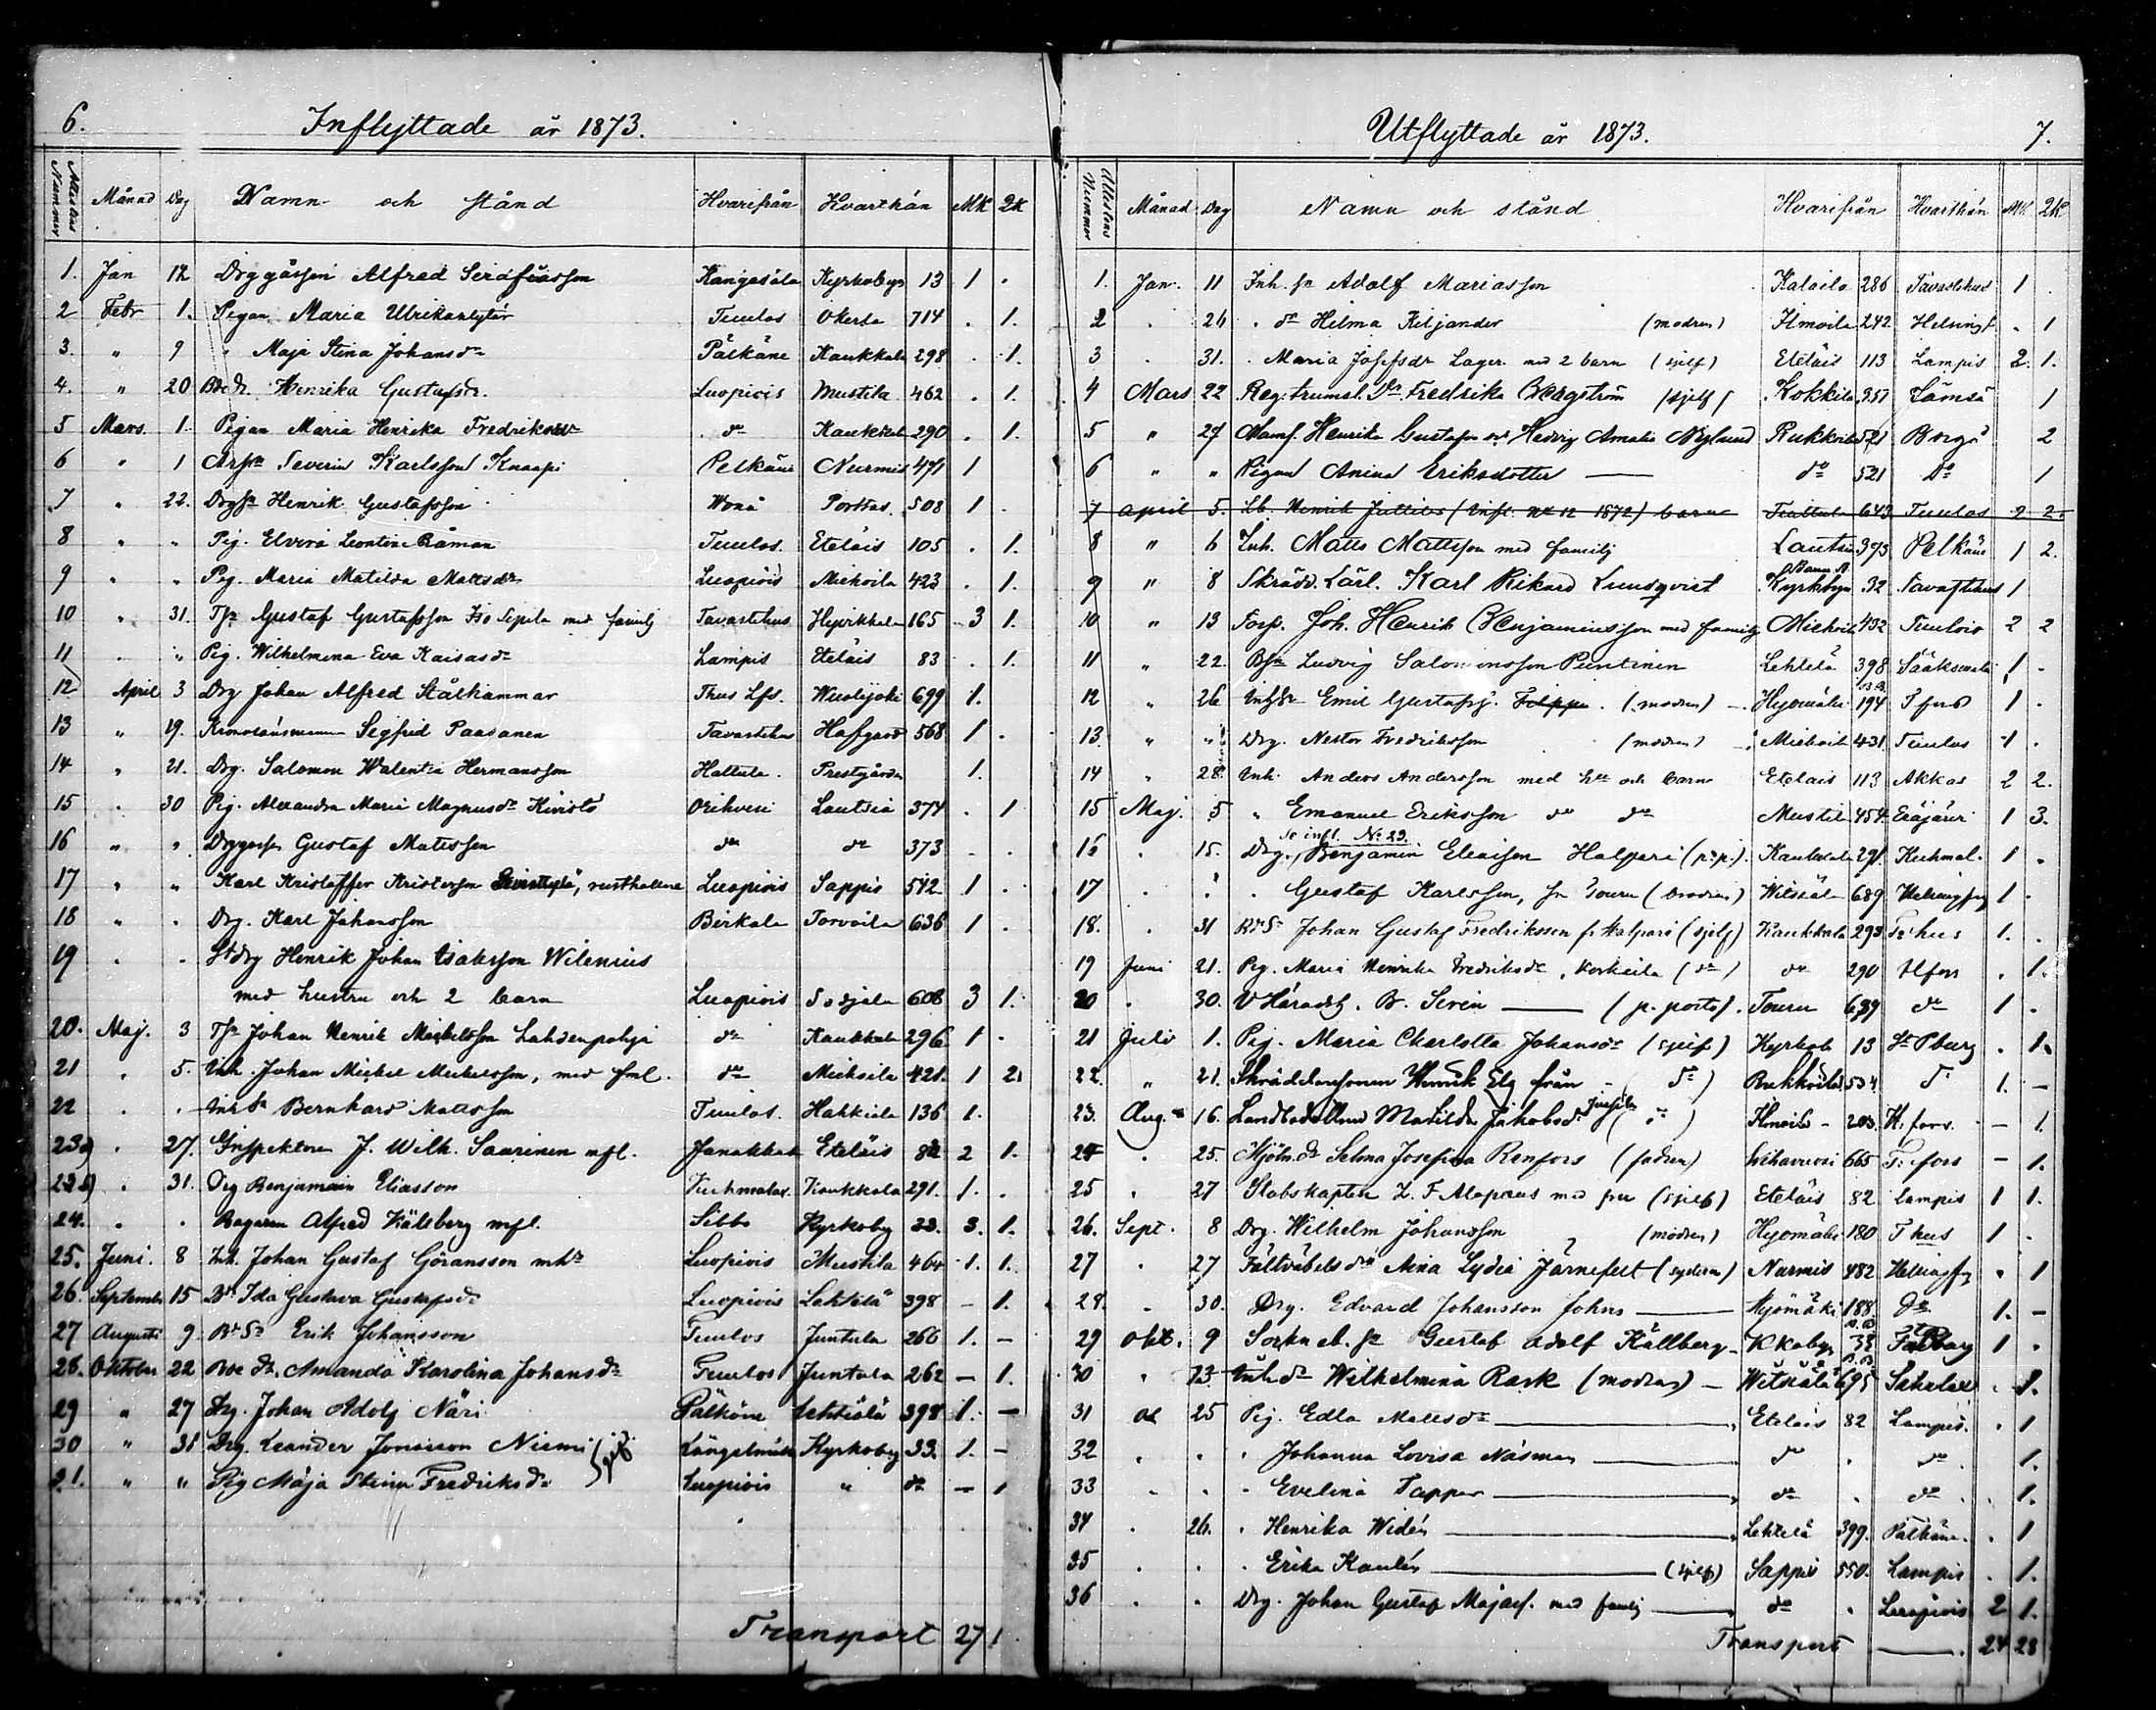 6.
Inflyttade år 1873.
Attestens Nummer Månad Dag Namn och stånd Hvarifrån Hvarthän Mk Qk
1. Jan 12 Drggåssen Alfred Serafiasson Kangasala Kyrkobyn 13 1 .
2 Febr 1. Pigan Maria Ulrikasdytär Tuulos Okerla 714 . 1.
3. " 9 " Maja Stina Johansdr Pälkäne Kaukkala 298 . 1.
4. " 20 Henrika Gustafsdr. Luopiois Mustila 462 . 1.
5 Mars. 1. Pigan Maria Henrika Fredriksdr do Kaukkala 290 . 1.
6 " 1 Severin Karlsson Knaapi Pelkäne Nurmis 471 1
7 " 22. Henrik Gustafsson Porttas 508 1 .
8 " " Pig. Elvira Leontina Råman Tuulos. Eteläis 105 . 1.
9 " " Pig. Maria Matilda Mattsdr Luopiois Mickoila 423 . 1.
10 " 31. Gustaf Gustafsson Iso Sipila med familj Tavastehus Hyrkkala 165 3 1.
11 " " Pig. Wilhelmina Eva Kaisasdr Lampis Eteläis 83 . 1.
12 April 3 Drg Johan Alfred Stålhammar Thus Lfs. Wuolijoki 699 1.
13 " 19. Kronolänsman Segfrid Paasonen Tavastehus Hafgård 568 1 .
14 " 21. Drg. Salomon Walentin Hermansson Hattula. Prestgården 1.
15 . 30 Pig. Alexandra Maria Magnusdr Kivistö Orihvesi Lautsia 374 . 1
16 " " Gustaf Matsson do do 373 . .
17 " " Karl Kristoffer Kristersson rusthållare Luopiois Sappis 542 1 .
18 " . Drg. Karl Johansson Birkala Torvoila 636 1 .
19 . . Henrik Johan Isaksson Wilenius
med hustru och 2 barn Luopiois 608 3 1.
20. Maj. 3 Johan Henrik Mickelsson Lahdenpohja do Kaukkala 296 1 .
21 . 5. Inh. Johan Mickel Mickelsson, med fml. do Mickoila 421. 1 2.
22 . . Bernhard Mattsson Tuulos. Hakkiala 136 1.
23a) . 27. Inspektoren J. Wilh. Saarinen mfl. Janakkala Eteläis 82 2 1.
23b) . 31. Drg Benjamin Eliasson Kuhmalax. Kaukkala 291. 1. .
24. . . Bagaren Alfred Källberg mfl. Sibbo Kyrkoby 33. 3. 1.
25. Juni. 8 Inh. Johan Gustaf Göransson mhu Luopiois Mustila 464 1. 1.
26. September 15 Ida Gustava Gustafsdr Luopiois Lehtelä 398 – 1.
27 Augusti 9 Erik Johansson Tuulos Juntula 266 1. –
28. Oktober 22 Amanda Karolina Johansdr Tuulos Juntula 262 – 1.
29 " 27 Drg. Johan Adolf Näri Pälkäne Lehtiälä 398 1. –
30 " 31 Drg. Leander Jonasson Niemi Längelmäki Kyrkoby 33. 1. –
31. " " Pig Maja Stina Fredriksdr Luopiois " do – 1
Transport 27
7.
Utflyttade år 1873.
Attestens Nummer Månad Dag Namn och stånd Hvarifrån Hvarthän Mk Qk
1. Jan. 11 Inh. sn Adolf Mariasson Kataila 286 Tavastehus 1 .
2 . 26 . dr Hilma Kiljander (modren) Ilmoila 242 Helsingf . 1
3 . 31. . Maria Josefsdr Lager med 2 barn (sjelf) Eteläis 113 Lampis 2. 1.
4 Mars 22 Reg. trumsl. Dr. Fredrika Bergström (sjelf) Kokkila 951 Jämsä 1
5 " 27 Mams. Henrika Gustafva och Hedvig Amalia Nylund Rukkoila 521 Borgå 2
6 " " Pigan Anina Eriksdotter do 521 Do 1
7 april 5. Lb. Henrik (Infl. No 12 1872) barn 643 Tuulos 2 2.
8 " 6 Inh. Matts Mattsson med familj Lautsia 373 Pelkäne 1 2.
9 " 8 Skrädd. Lärl. Karl Rikard Lundqvist Kyrkbyn 32 Tavastehus 1
10 " 13 Torp. Joh. Henrik Benjaminsson med familj Mickoila 432 Tuulois 2 2
11 " 22. Ludvig Salomonsson Puntinen Lehtelä 398 Sääksmäki 1 .
12 " 26 Emil Gustafss. Filippu. (modren) Hyömäki 194 Tfors 1 .
13. " " Drg. Nestor Fredriksson (modren) Mickoila 431 Tuulos 1 .
14 " 28 Inh. Anders Andersson med hu och barn Eteläis 113 Akkas 2 2.
15 Maj. 5 " Emanuel Eriksson do do Mustila 454 Eräjärvi 1 3.
se infl. No 23.
16 . 15. Drg. Benjamin Eliasson Halpari (p.p.) Kaukkala 291. Kuhmal. 1 .
17 . . . Gustaf Karlsson, fr Touru (brodren) Witsiälä 689 Helsingfors 1 .
18. . 31 Johan Gustaf Fredriksson fr Halpari (sjelf) Kaukkala 293 T:hus 1. .
19 Juni 21. Pig. Maria Henrika Fredriksdr, Korkeila (do) do 290 Hfors . 1.
20 . 30. V Häradsh. B. Seven (p. posto). Touru 689 do 1 .
21 Juli 1. Pig. Maria Charlotta Johansdr (sjelf) Kyrkob 13 St Pburg . 1.
22. " 21. Skräddaresonen Henrik Elg från – (do) Rukkoila 534 do 1. –
23. Aug. 16. Matilda Jakobsdr (do) Ilmoila – 203. H:fors. – 1.
24 . 25. Mjöln. dr Selma Josefina Renfors (fadren) Wihavuosi 665 T:fors – 1.
25 . 27 Stabskapten Z. F. Alopaeus med fru (sjelf) Eteläis 82 Lampis 1 1.
26. Sept. 8 Drg. Wilhelm Johansson (modren) Hyömäki 180 Thus 1 .
27 . 27 Fältväbelsdr Aina Lydia Järnefelt (systern) Nurmis 482 Helsingfors . 1
28. . 30. Drg. Edvard Johansson Johns Hyömäki 188. do 1. –
29 Okt. 9 Gustaf Adolf Källberg K kobyn 33 1 .
30 . 13. Inh dr Wilhelmina Rask (modren) Witsiälä 695 Sahalax . 1.
31 25 Pig. Edla Mattsdr Eteläis 82 Lampis. . 1
32 . . . Johanna Lovisa Näsman do . do . 1.
33 . . . Evelina Tapper do . do . 1.
34 . 26. . Henrika Widén Lehtelä 399. Pälkäne. . 1
35 . . . Erika Kaulén (sjelf) Sappis 550. Lampis . 1.
36 . . Drg. Johan Gustaf Majass. med familj do . Luopiois 2 1.
Transport 24 28